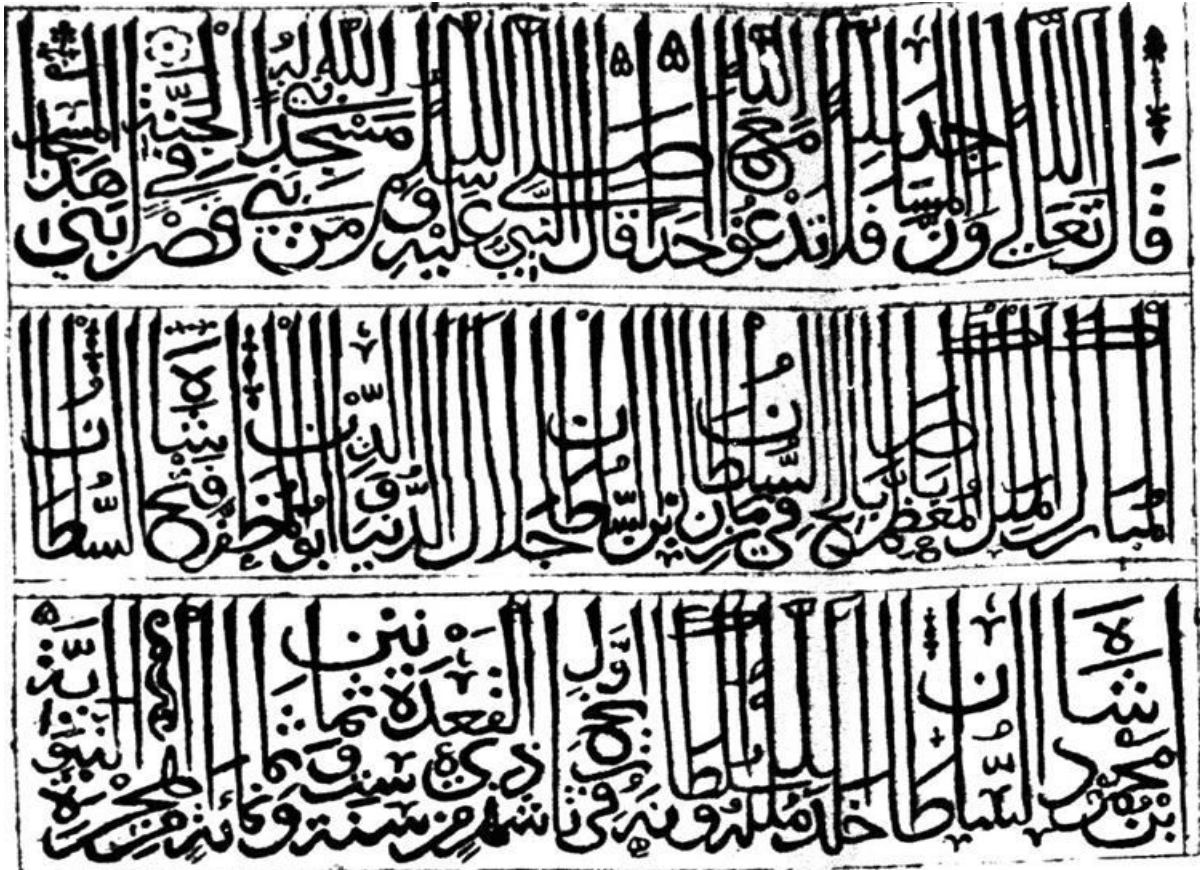 قال الله تعالى وان المساجد لله فلا تدعوا مع الله احدا قال النبي صلى الله عليه وسلم من بنى مسجدا لله بنى الله له قصرا في الجنة بنى هذا المسجد
المبارك الملك المعظم بابا صالح في زمان السلطان بن السلطان جلال الدنيا والدين ابو المظفر فتح شاه السلطان
بن محمود شاه السلطان خلد الله ملكه وسلطانه في تاريخ اول شهر ذي القعدة من سنة ست وثمانين وثمانمائة من الهجرة النبوية